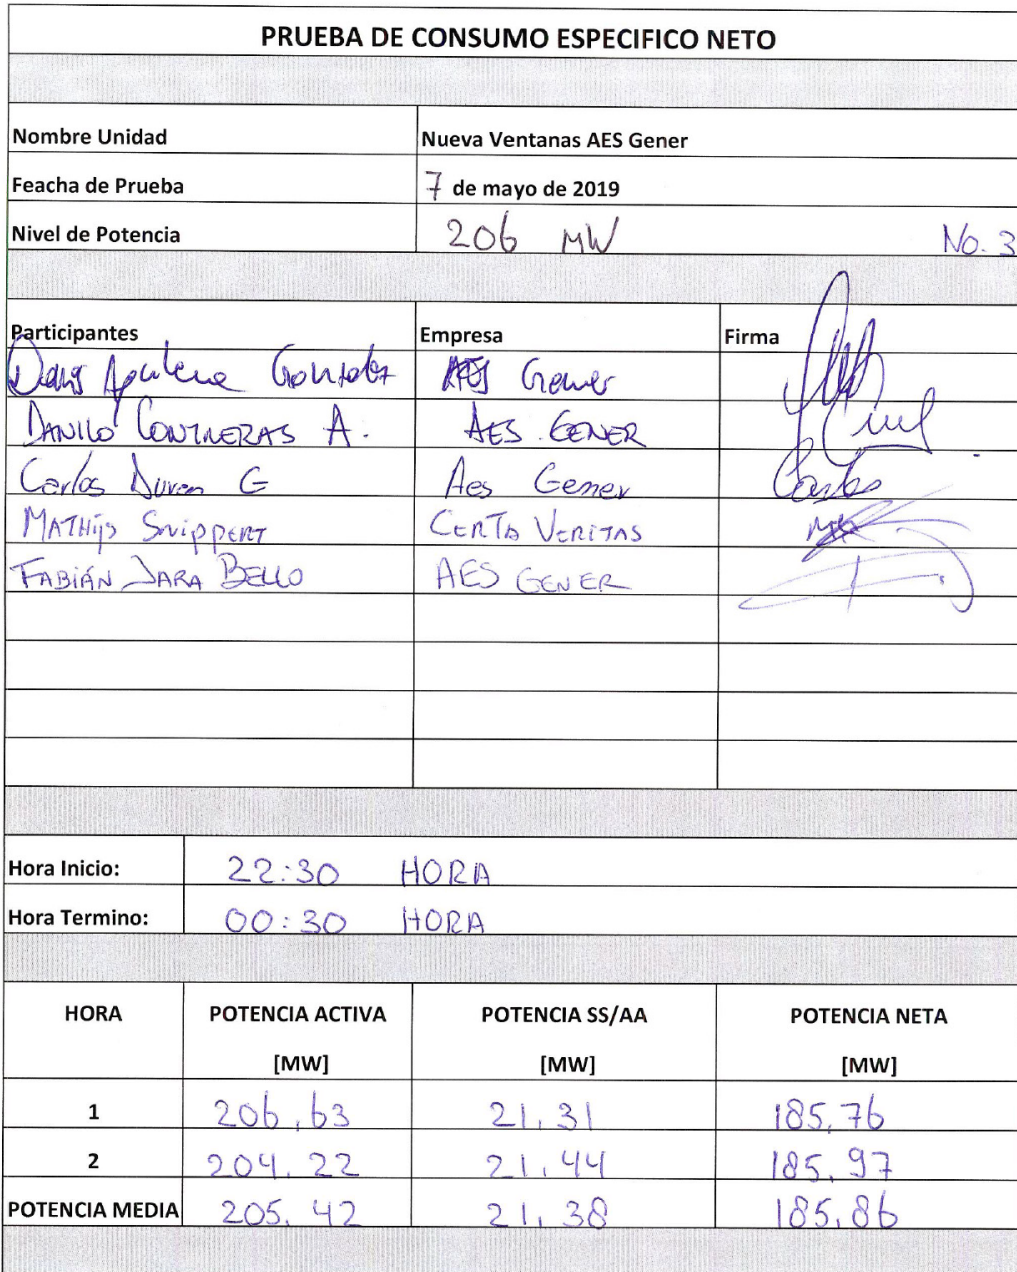 PRUEBA DE CONSUMO ESPECIFICO NETO
Nombre Unidad Nueva Ventanas AES Gener
Feacha de Prueba 7 de mayo de 2019
Nivel de Potencia 206 MW No. 3
Participantes Empresa Firma
AES Gener
DANILO CONTRERAS A. AES GENER
Carlos Duran G Aes Gener Carlos
MATHIJS SNIPPERT CERTA VERITAS
FABIÁN JARA BELLO AES GENER
Hora Inicio: 22:30 HORA
Hora Termino: 00:30 HORA
HORA POTENCIA ACTIVA POTENCIA SS/AA POTENCIA NETA
[MW] [MW] [MW]
1 206,63 21,31 185,76
2 204,22 21,44 185,97
POTENCIA MEDIA 205,42 21,38 185,86